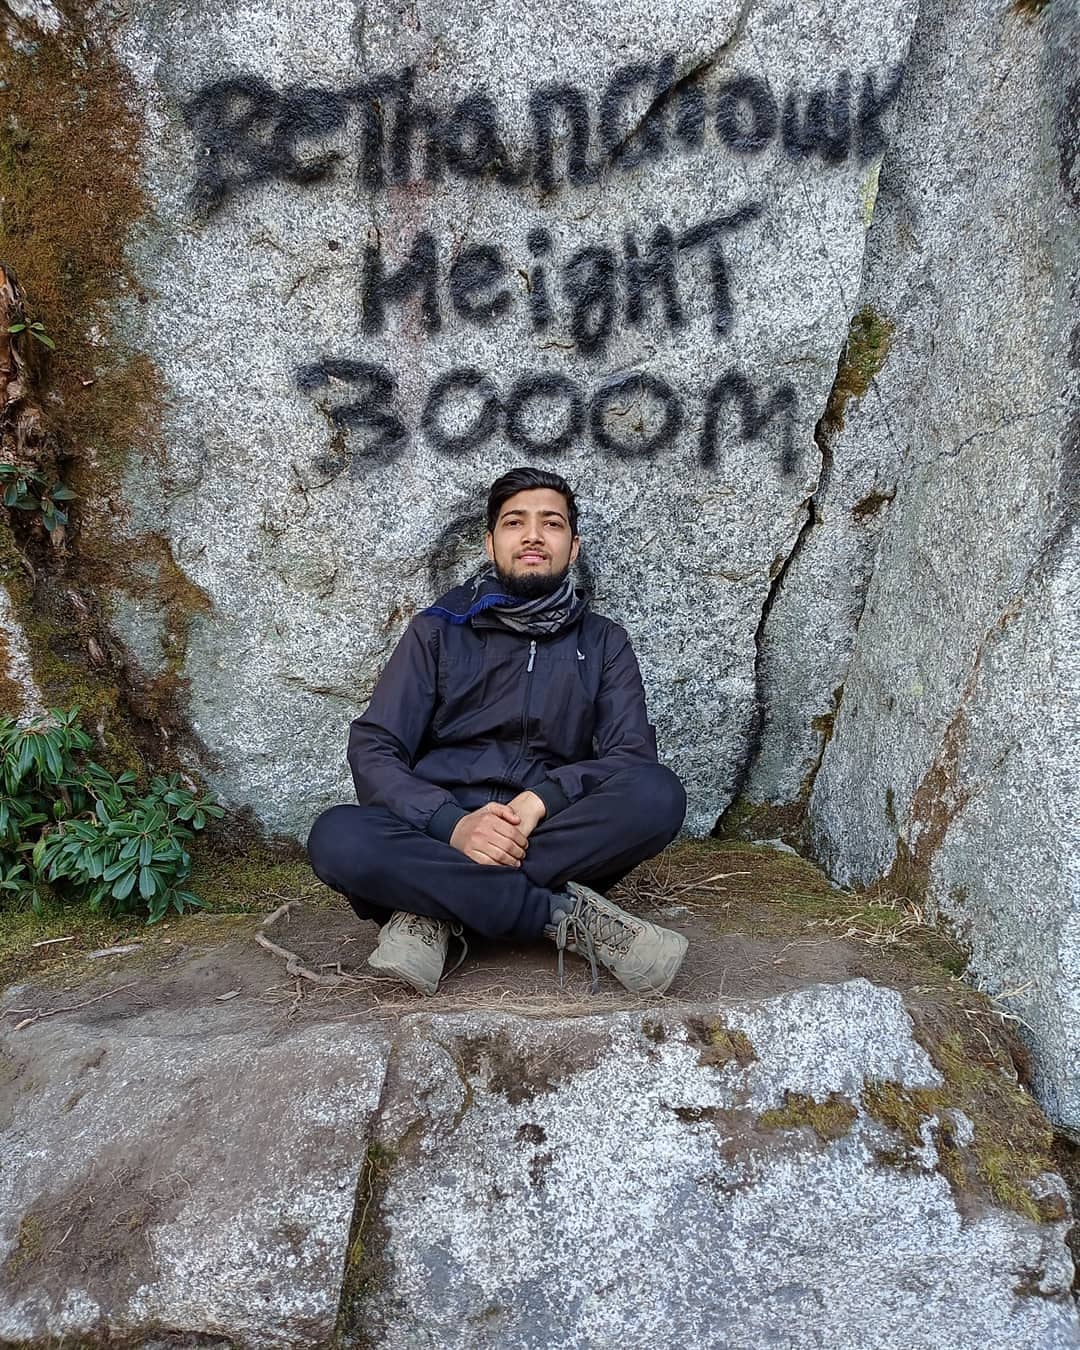 BeThanChowk
HeigHT
3000M